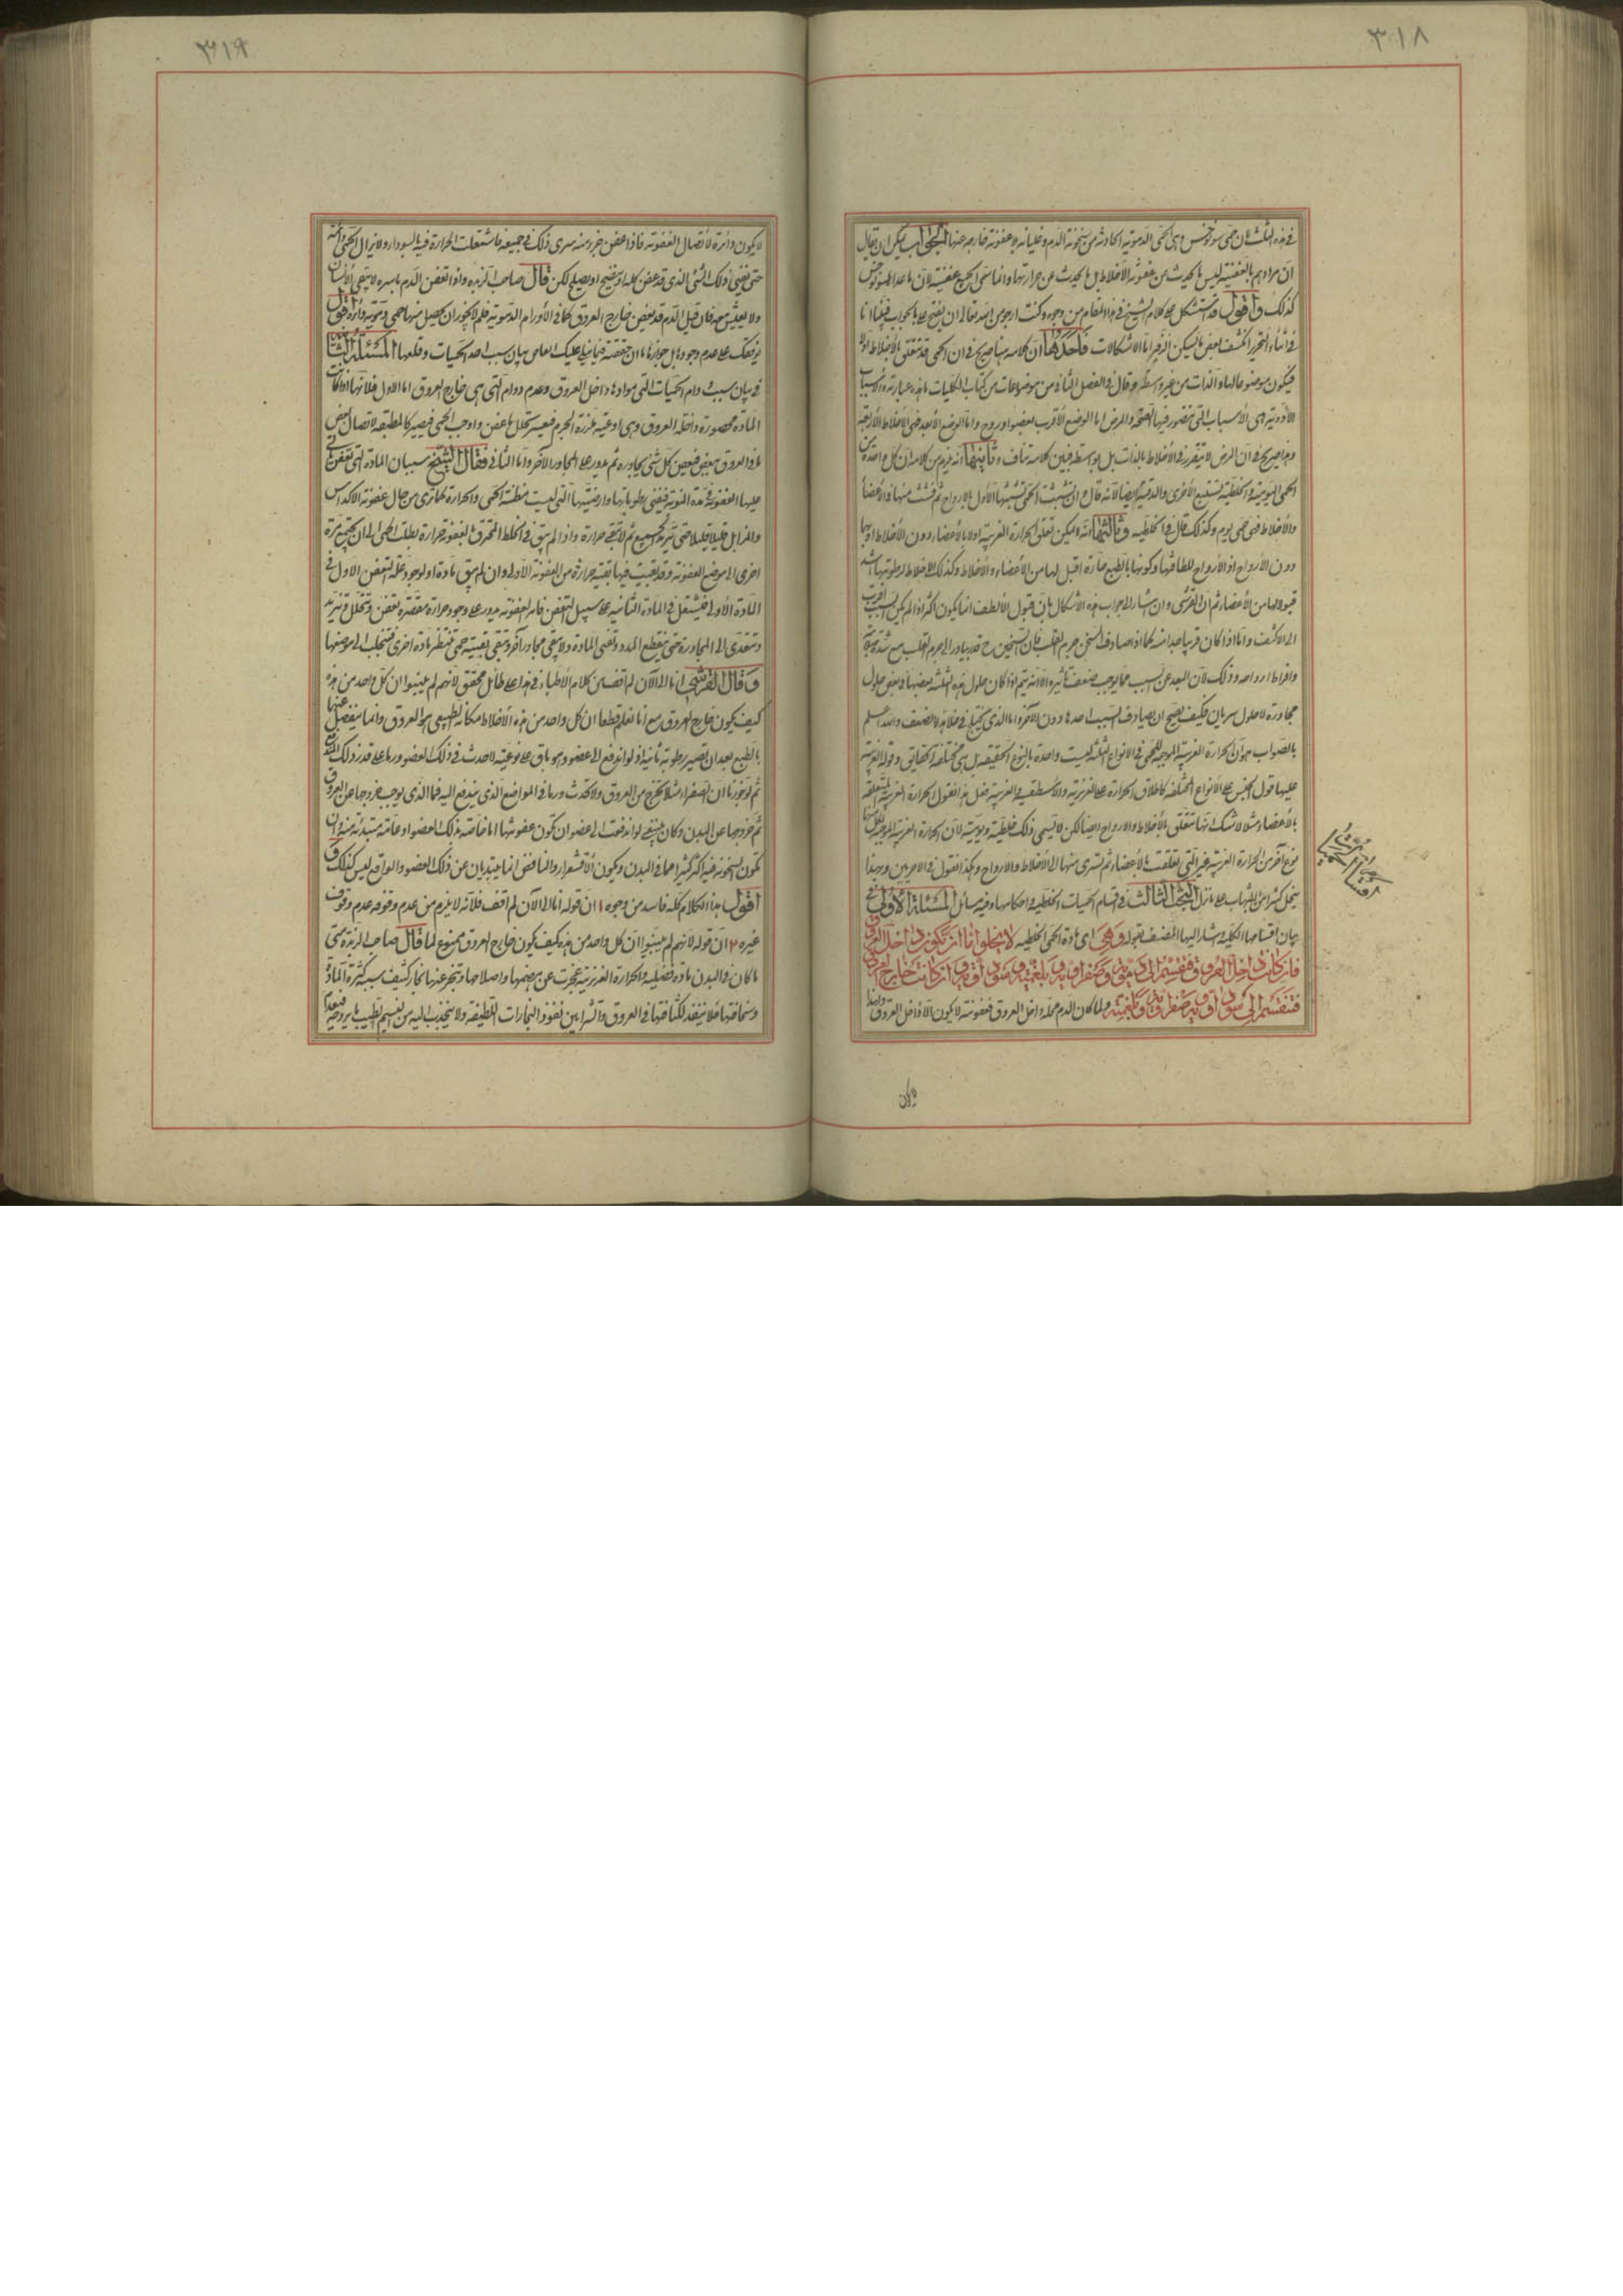 ٣١٨
في هذه الثلث بان حمى سونوخس وهي الحمى الدموية الحادثة من سخونة الدم وغليانه بلا عفونة خارجة عنها الجواب يمكن ان يقال
ان مرادهم بالعفنية ليس ما يحدث من عفونة الاخلاط بل ما يحدث عن حرارتها وانما سمى الجميع عفنية لان ما عدا السونوخس
كذلك واقول قد يستشكل على كلام الشيخ في هذا المقام من وجوه وكنت ارجو من الله تعالى ان يفتح على بالجواب
في اثناء التحرير انكشف بعض فاحدها ان كلامه هنا صريح في ان الحمى قد تتعلق بالاخلاط اولا
فيكون موضوعا لها بالذات من غير واسطة وقال في الفصل الثاني من موضوعات من كتاب الكليات ما هذه عبارته والاسباب
المادية هي الاسباب التي تتصور فيها الصحة والمرض اما الوضع الاقرب فعضو او روح واما الوضع الابعد فهي الاخلاط الاربعة
وهذا صريح في ان المرض لا يتقرر في الاخلاط بالذات بل بواسطة فبين كلاميه تناف وثانيها انه يلزم من كلامه ان كل واحدة من
الحمى اليومية والخلطية تستتبع الاخرى والدقية ايضا لانه قال وان تشبثت الحمى تشبثها الاول بالارواح ثم فشت منها في الاعضاء
والاخلاط فهي حمى يوم وكذلك قال في الخلطية وثالثها انه لا يمكن تعلق الحرارة الغريبة اولا بالاعضاء دون الاخلاط او بها
دون الارواح اذ الارواح للطافتها وكونها بالطبع حارة اقبل لها من الاعضاء والاخلاط وكذلك الاخلاط لرطوبتها اشد
قبولا لها من الاعضاء ثم ان القرشى وان اشار الى جواب هذه الاشكال بان قبول الالطف انما يكون اكثر اذا لم يكن السبب اقرب
الى الاكثف واما اذا كان قريبا جدا منه كما اذا صادف المسخن جرم القلب فان التسخين ح قد يبادر الى جرم القلب مع شدة سخونة
وافراط ارواحه وذلك لان البعد عن السبب مما يوجب ضعف تاثيره الا انه يتم اذا كان حلول هذه الثلثة بعضها في بعض حلول
مجاورة لا حلول سريان فكيف يصح ان يصادف السبب احدها دون الآخر واما الذي يختلج في خلد هذا الضعيف والله اعلم
بالصواب هو ان الحرارة الغريبة الموجبة للحمى في الانواع الثلثة ليست واحدة بالنوع الحقيقى بل هي مختلفة الحقايق وقول الغريبة
عليها قول الجنس على الانواع المختلفة كاطلاق الحرارة على الغريزية والاسطقسية والغريبة فعلى هذا نقول الحرارة الغريبة المتعلقة
بالاعضاء مثلا لا شك انها تتعلق بالاخلاط والارواح ايضا لكن لا يسمى ذلك خلطية ويومية لان الحرارة الغريبة الموجبة لكل منها
نوع آخر من الحرارة الغريبة غير التي تعلقت بالاعضاء ثم تسرى منها الى الاخلاط والارواح وهكذا نقول في الاخريين وبهذا
ينحل كثير من الشبهات على ما نزل البحث الثالث في اقسام الحميات الخلطية واحكامها وفيه مسائل المسئلة الاولى في
بيان اقسامها الكلية واشار اليها المصنف بقوله وهى اى مادة الحمى الخلطية لا يخلوا اما ان تكون داخل العروق
فان كانت داخل العروق فتنقسم الى دموية وصفراوية وبلغمية وسوداوية وان كانت خارج العروق
فتنقسم الى سوداوية وصفراوية وبلغمية ولما كان الدم محله داخل العروق فعفونته لا يكون الا داخل العروق ولهذا
اقسام الحميات
٣١٩
لا يكون دائرة لاتصال العفونة فاذا عفن جزء منه سرى ذلك في جميعه فاشتعلت الحرارة فيه بالسواد ولا يزال الحمى دائمة
حتى يفنى ذلك الشئ الذى قد عفن كله او ينضج او يصلح لكن قال صاحب الزبدة واذا تعفن الدم باسره لا يبقى الانسان
ولا يعيش معه فان قيل الدم قد يعفن خارج العروق كما في الاورام الدموية فلم لا يجوز ان يحصل منها حمى دموية دائرة اقول
يوقفك على عدم وجوده بل جوازه ما ان حققته فيما يملى عليك العلم من بيان سبب اخذ الحميات وقلعها المسئلة الثانية
في بيان سبب دوام الحميات التي موادها داخل العروق وعدم دوام التي هي خارج العروق اما الاول فلانها اذا كانت
المادة محصورة داخل العروق وهي اوعية غزيرة الجرم فيعسر تحلل ما عفن واوجب الحمى فيصير كالمطبقة لاتصال بعض
ما في العروق ببعض فيعفن كل شئ يجاوره ثم يدور على المجاور الآخر واما الثاني فقال الشيخ سببه ان المادة التي تعفن ياتى
عليها العفونة في مدة النوبة فيفنى رطوباتها وارضيتها التي ليست مظنة الحمى والحرارة كما ترى من حال عفونة الاكداس
والمزابل قليلا قليلا حتى يترمد الجميع ثم لا يبقى حرارة واذا لم يبق في الخلط المحترق بالعفونة حرارة بطلت الحمى الى ان يجتمع مرة
اخرى الى موضع العفونة وقد بقيت فيها بقية حرارة من العفونة الاولى وان لم يبق مادة او لوجود علة التعفن الاول في
المادة الاولى فيشتعل في المادة الثانية على سبيل التعفن فامر العفونة يدور على وجود حرارة مقصرة تعفن وتحلل فيزيد
وتتعدى الى المجاورة حتى ينقطع المدد وتفنى المادة ولا يبقى مجاور آخر وتبقى بقية حمى تنتظر مادة اخرى تنجلب الى موضعها
وقال القرشى انا الى الآن لم اقف من كلام الاطباء في هذا على طائل محقق لانهم لم يبينوا ان كل واحد من هذه
كيف يكون خارج العروق مع انا نعلم قطعا ان كل واحد من هذه الاخلاط مكانه الطبيعى هو العروق وانما ينفصل عنها
بالطبع بعد ان تصير رطوبة ثانية اذ لو اندفع الى عضو وهو باق على نوعيته لاحدث في ذلك العضو ورما على قدر ذلك المندفع
ثم لو جوزنا ان الصفراء مثلا تخرج من العروق ولا تحدث ورما في المواضع الذي يندفع اليه فما الذى يوجب خروجها عن العروق
ثم خروجها عن البدن وكان ينبغى لو اندفعت الى عضو ان تكون عفونتها اما خاصة بذلك العضو او عامة مبتدئة منه وان
تكون السخونة فيه اكثر كثيرا مما في البدن ويكون الاقشعرار والنافض انما يبتديان عن ذلك العضو والواقع ليس كذلك
اقول هذا الكلام كله فاسد من وجوه ١ ان قوله انا الى الآن لم اقف فلانه لا يلزم من عدم وقوفه عدم وقوف
غيره ٢ ان قوله لانهم لم يبينوا ان كل واحد من هذه كيف يكون خارج العروق ممنوع لما قال صاحب الزبدة متى
ما كان في البدن مادة فضلية والحرارة الغريزية عجزت عن هضمها واصلاحها وتبخر عنها بخار كثيف بسبب كثرة المادة
وسخافتها فلا ينفذ لكثافتها في العروق والشرايين نفوذ البخارات اللطيفة ولا ينجذب اليه من النسيم الطيب ما يروحه